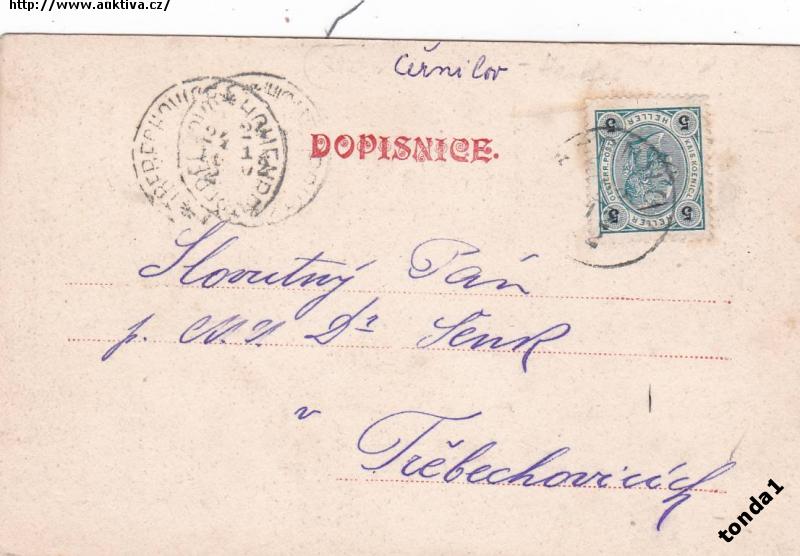 http://www.auktiva.cz/
Černilov
DOPISNICE.
5 HELLER 5
KAIS. KOENIGL.
OESTERR. POST
5 HELLER 5
Slovutný Pán
p. Dr Šenk
v
Třebechovicích
tonda1